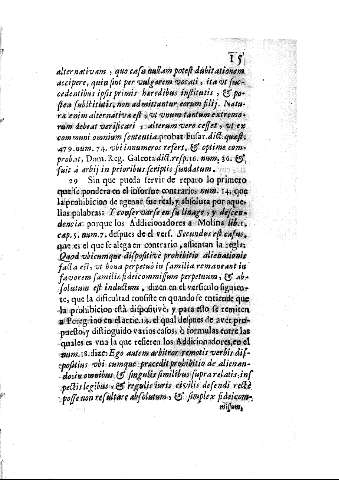 15
alternativam, quo casu nullam potest dubitationem
accipere, quin sint per vulgarem vocati, ita vt suc-
cedentibus ipsis primis haredibus institutis, & po-
stea substitutis, non admittantur eorum filij. Natu-
ra enim alternativa est, vt vnum tantum extremo-
rum debeat verificari, alterum vero cesset, vt ex
communi omnium sententia probat Fusar. dict. quæst.
479. num. 74. vbi innumeros refert, & optime com-
probat, Dom. Reg. Galeota dict. resp. 16. num. 36. &
fuit à arbij in prioribus scriptis fundatum.
29 Sin que pueda servir de reparo lo primero
que se pondera en el informe contrario num. 14. que
la prohibicion de agenar fue real, y absoluta por aque-
llas palabras: Y conservarse en su linage, y descen-
dencia: porque los Addicionadores à Molina lib. 1.
cap. 5. num. 7. despues de el vers. Secundus est casus,
que es el que se alega en contrario, assientan la regla:
Quod vbicumque dispositivè prohibitio alienationis
facta est, vt bona perpetuò in familia remaneant in
favorem familia fideicommissum perpetuum, & ab-
solutum est inductum, dizen en el versiculo siguien-
te, que la dificultad consiste en quando se entiende que
la prohibicion està dispositivè, y para esto se remiten
à Peregrino en el artic. 14. el qual despues de aver pro-
puesto, y distinguido varios casos, ò formulas entre las
quales es vna la que refieren los Addicionadores, en el
num. 18. dize: Ego autem arbitror remotis verbis dis-
positivis vbi cumque præcedit prohibitio de alienan-
do in omnibus & singulis similibus supra relatis, ins-
pectis legibus, & regulis iuris civilis defendi rectè
posse non resultare absolutum, & simplex fideicom-
missum,